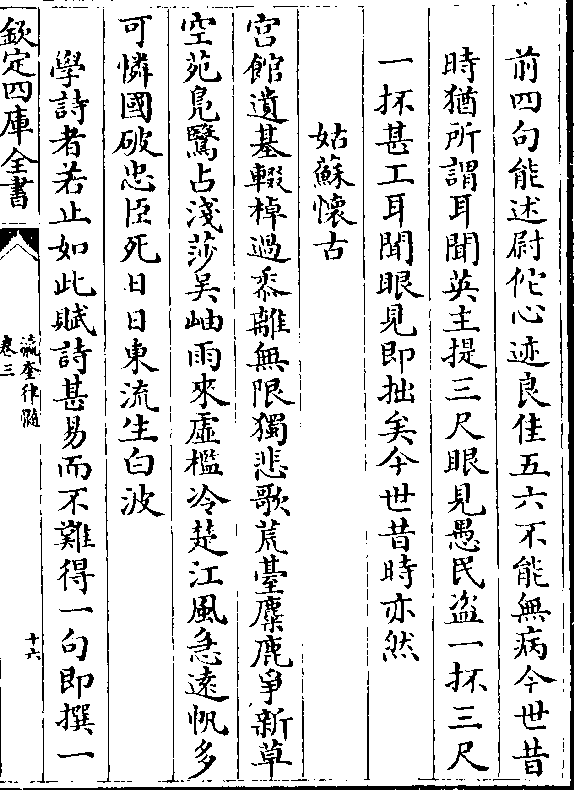 前四句能述尉佗心迹良佳五六不能無病今世昔
時猶所謂耳聞英主提三尺眼見愚民盜一抔三尺
一抔甚工耳聞眼見即拙矣今世昔時亦然
姑蘇懷古
宫館遺基輟棹過黍離無限獨悲歌荒臺麋鹿爭新草
空苑鳬鷖占淺莎吴岫雨來虛檻冷楚江風急遠帆多
可憐國破忠臣死日日東流生白波
學詩者若止如此賦詩甚易而不難得一句即撰一
欽定四庫全書
瀛奎律髓
卷三
十六